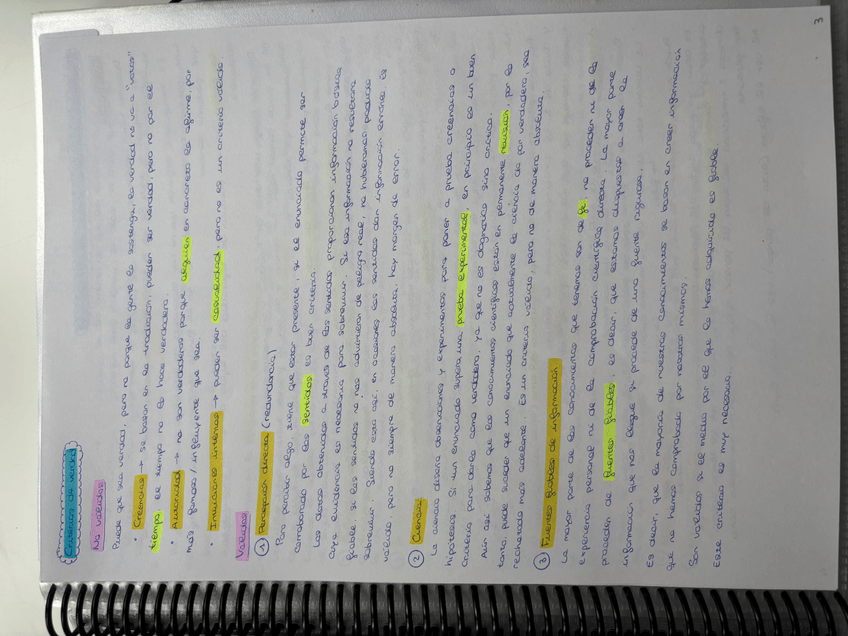 Criterios de verdad
No válidos
Puede que sea verdad, pero no porque la gente lo sostenga, la verdad no va a "votos"
• Creencias → se basan en la tradición, pueden ser verdad, pero no por el
tiempo, el tiempo no lo hace verdadero.
• Autoridad → no son verdaderos porque alguien en concreto lo afirme, por
más famoso / influyente que sea.
• Intuiciones internas → pueden ser casualidad, pero no es un criterio válido
Válidos
① Percepción directa (redundancia)
Para percibir algo, tiene que estar presente, si el enunciado permite ser
corroborado por los sentidos es buen criterio.
Los datos obtenidos a través de los sentidos proporcionan información básica
cuya evidencia es necesaria para sobrevivir. Si esa información no resultara
fiable, si los sentidos no nos advirtieran de peligro real, no hubiéramos podido
sobrevivir. Siendo esto así, en ocasiones los sentidos dan información errónea. Es
válido pero no siempre de manera absoluta, hay margen de error.
② Ciencia
La ciencia diseña observaciones y experimentos para poner a prueba creencias o
hipótesis. Si un enunciado supera una prueba experimental, en principio es un buen
criterio para darlo como verdadero, ya que no es dogmático sino crítico.
Aun así sabemos que los conocimientos científicos están en permanente revisión, por lo
tanto, puede suceder que un enunciado que actualmente la ciencia da por verdadero, sea
rechazado más adelante. Es un criterio válido, pero no de manera absoluta.
③ Fuentes fiables de información
La mayor parte de los conocimientos que tenemos son de fe, no proceden ni de la
experiencia personal ni de la comprobación científica directa. La mayor parte
proceden de fuentes fiables, es decir, que estamos dispuestos a creer la
información que nos llegue si procede de una fuente rigurosa.
Es decir, que la mayoría de nuestros conocimientos se basan en creer información
que no hemos comprobado por nosotros mismos.
Son válidos si el medio por el que lo hemos adquirido es fiable.
Este criterio es muy necesario.
3